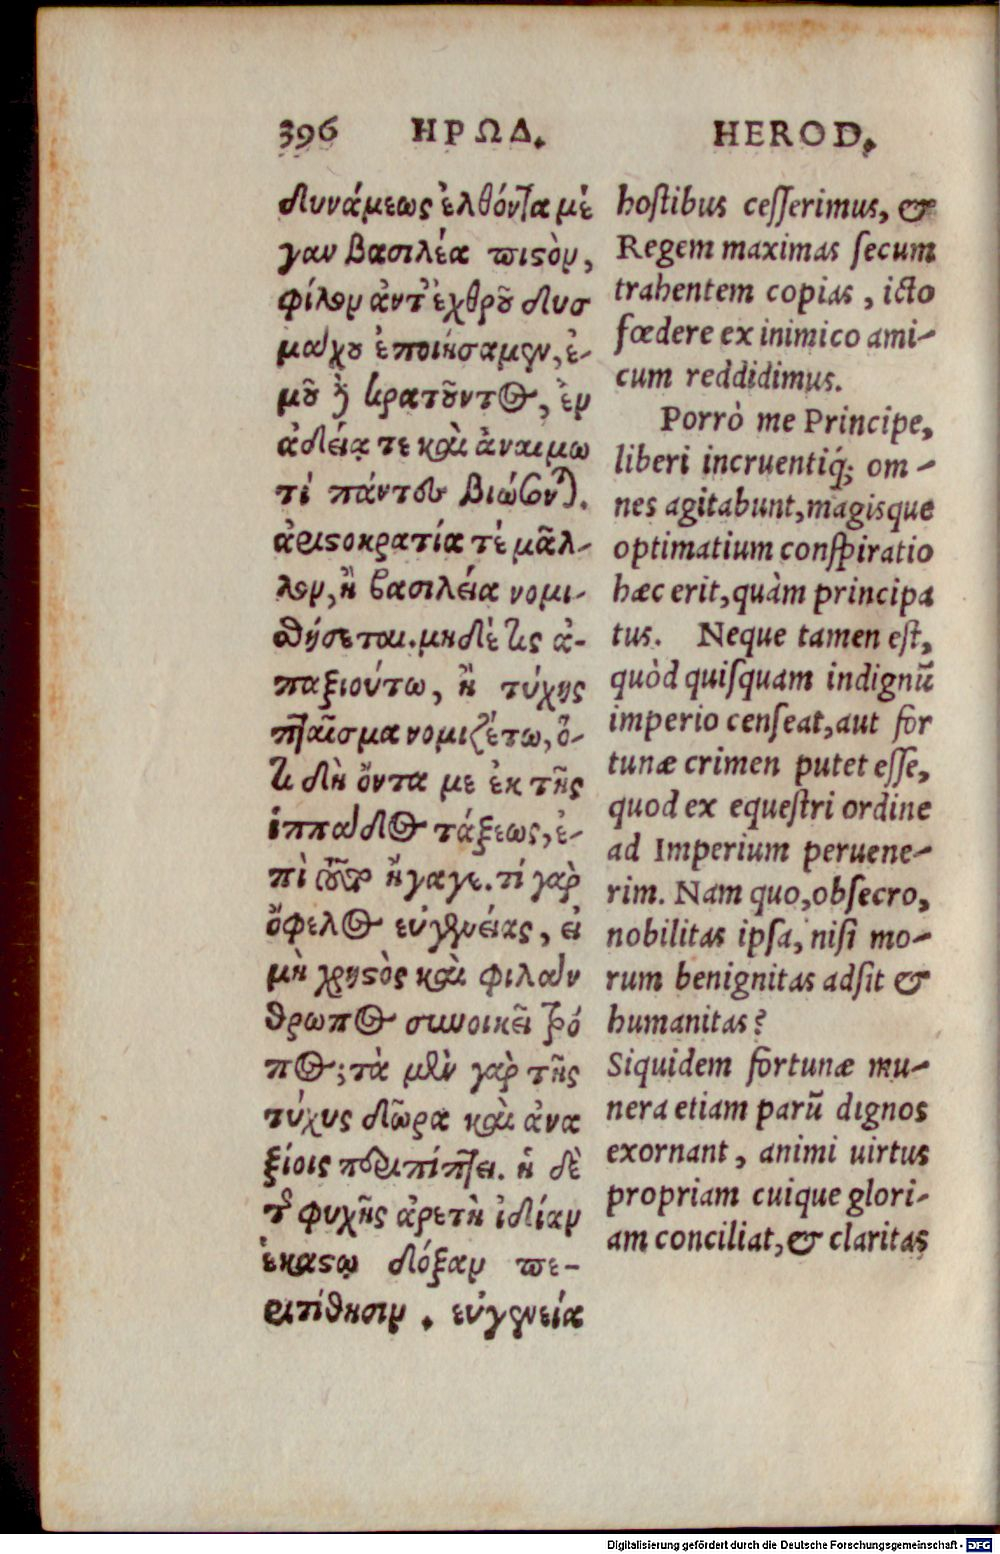 396 ΗΡΩΔ. HEROD.
δυνάμεως ἐλθόντα μέ
γαν βασιλέα πιστὸν,
φίλον ἀντ' ἐχθροῦ δυσ
μάχου ἐποιήσαμεν, ἐ-
μοῦ δὲ κρατοῦντος, ἐν
ἀδείᾳ τε καὶ ἀναιμω
τὶ πάντες βιώσονται.
ἀριστοκρατία τὲ μᾶλ-
λον, ἢ βασιλεία νομι-
σθήσεται. μηδὲ τὶς ἀ-
παξιούτω, ἢ τύχης
πταῖσμα νομιζέτω, ὅ-
τι δὴ ὄντα με ἐκ τῆς
ἱππάδος τάξεως, ἐ-
πὶ ἤγαγε. τί γὰρ
ὄφελος εὐγενείας, εἰ
μὴ χρηστὸς καὶ φιλάν
θρωπος συνοικεῖ τρό
πος; τὰ μὲν γὰρ τῆς
τύχυς δῶρα καὶ ἀνα
ξίοις περιπίπτει. ἡ δὲ
τῆς ψυχῆς ἀρετὴ ἰδίαν
ἑκάστῳ δόξαν πε-
ριτίθησιν. εὐγενεία
hostibus cesserimus, &
Regem maximas secum
trahentem copias, icto
fœdere ex inimico ami-
cum reddidimus.
Porrò me Principe,
liberi incruentiq́; om-
nes agitabunt, magisque
optimatium conspiratio
hæc erit, quàm principa
tus. Neque tamen est,
quòd quisquam indignũ
imperio censeat, aut for
tunæ crimen putet esse,
quod ex equestri ordine
ad Imperium peruene-
rim. Nam quo, obsecro,
nobilitas ipsa, nisi mo-
rum benignitas adsit &
humanitas?
Siquidem fortunæ mu-
nera etiam parũ dignos
exornant, animi uirtus
propriam cuique glori-
am conciliat, & claritas
Digitalisierung gefördert durch die Deutsche Forschungsgemeinschaft - DFG